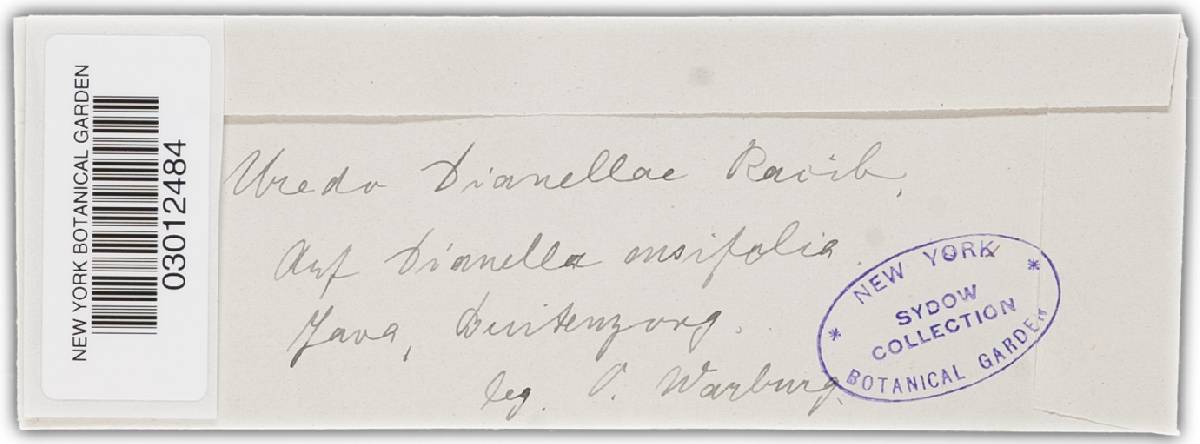 NEW YORK BOTANICAL GARDEN
03012484
Uredo Dianellae Racib.
Auf Dianella ensifolia.
Java, Buitenzorg.
leg. O. Warburg.
NEW YORK
SYDOW
COLLECTION
BOTANICAL GARDEN